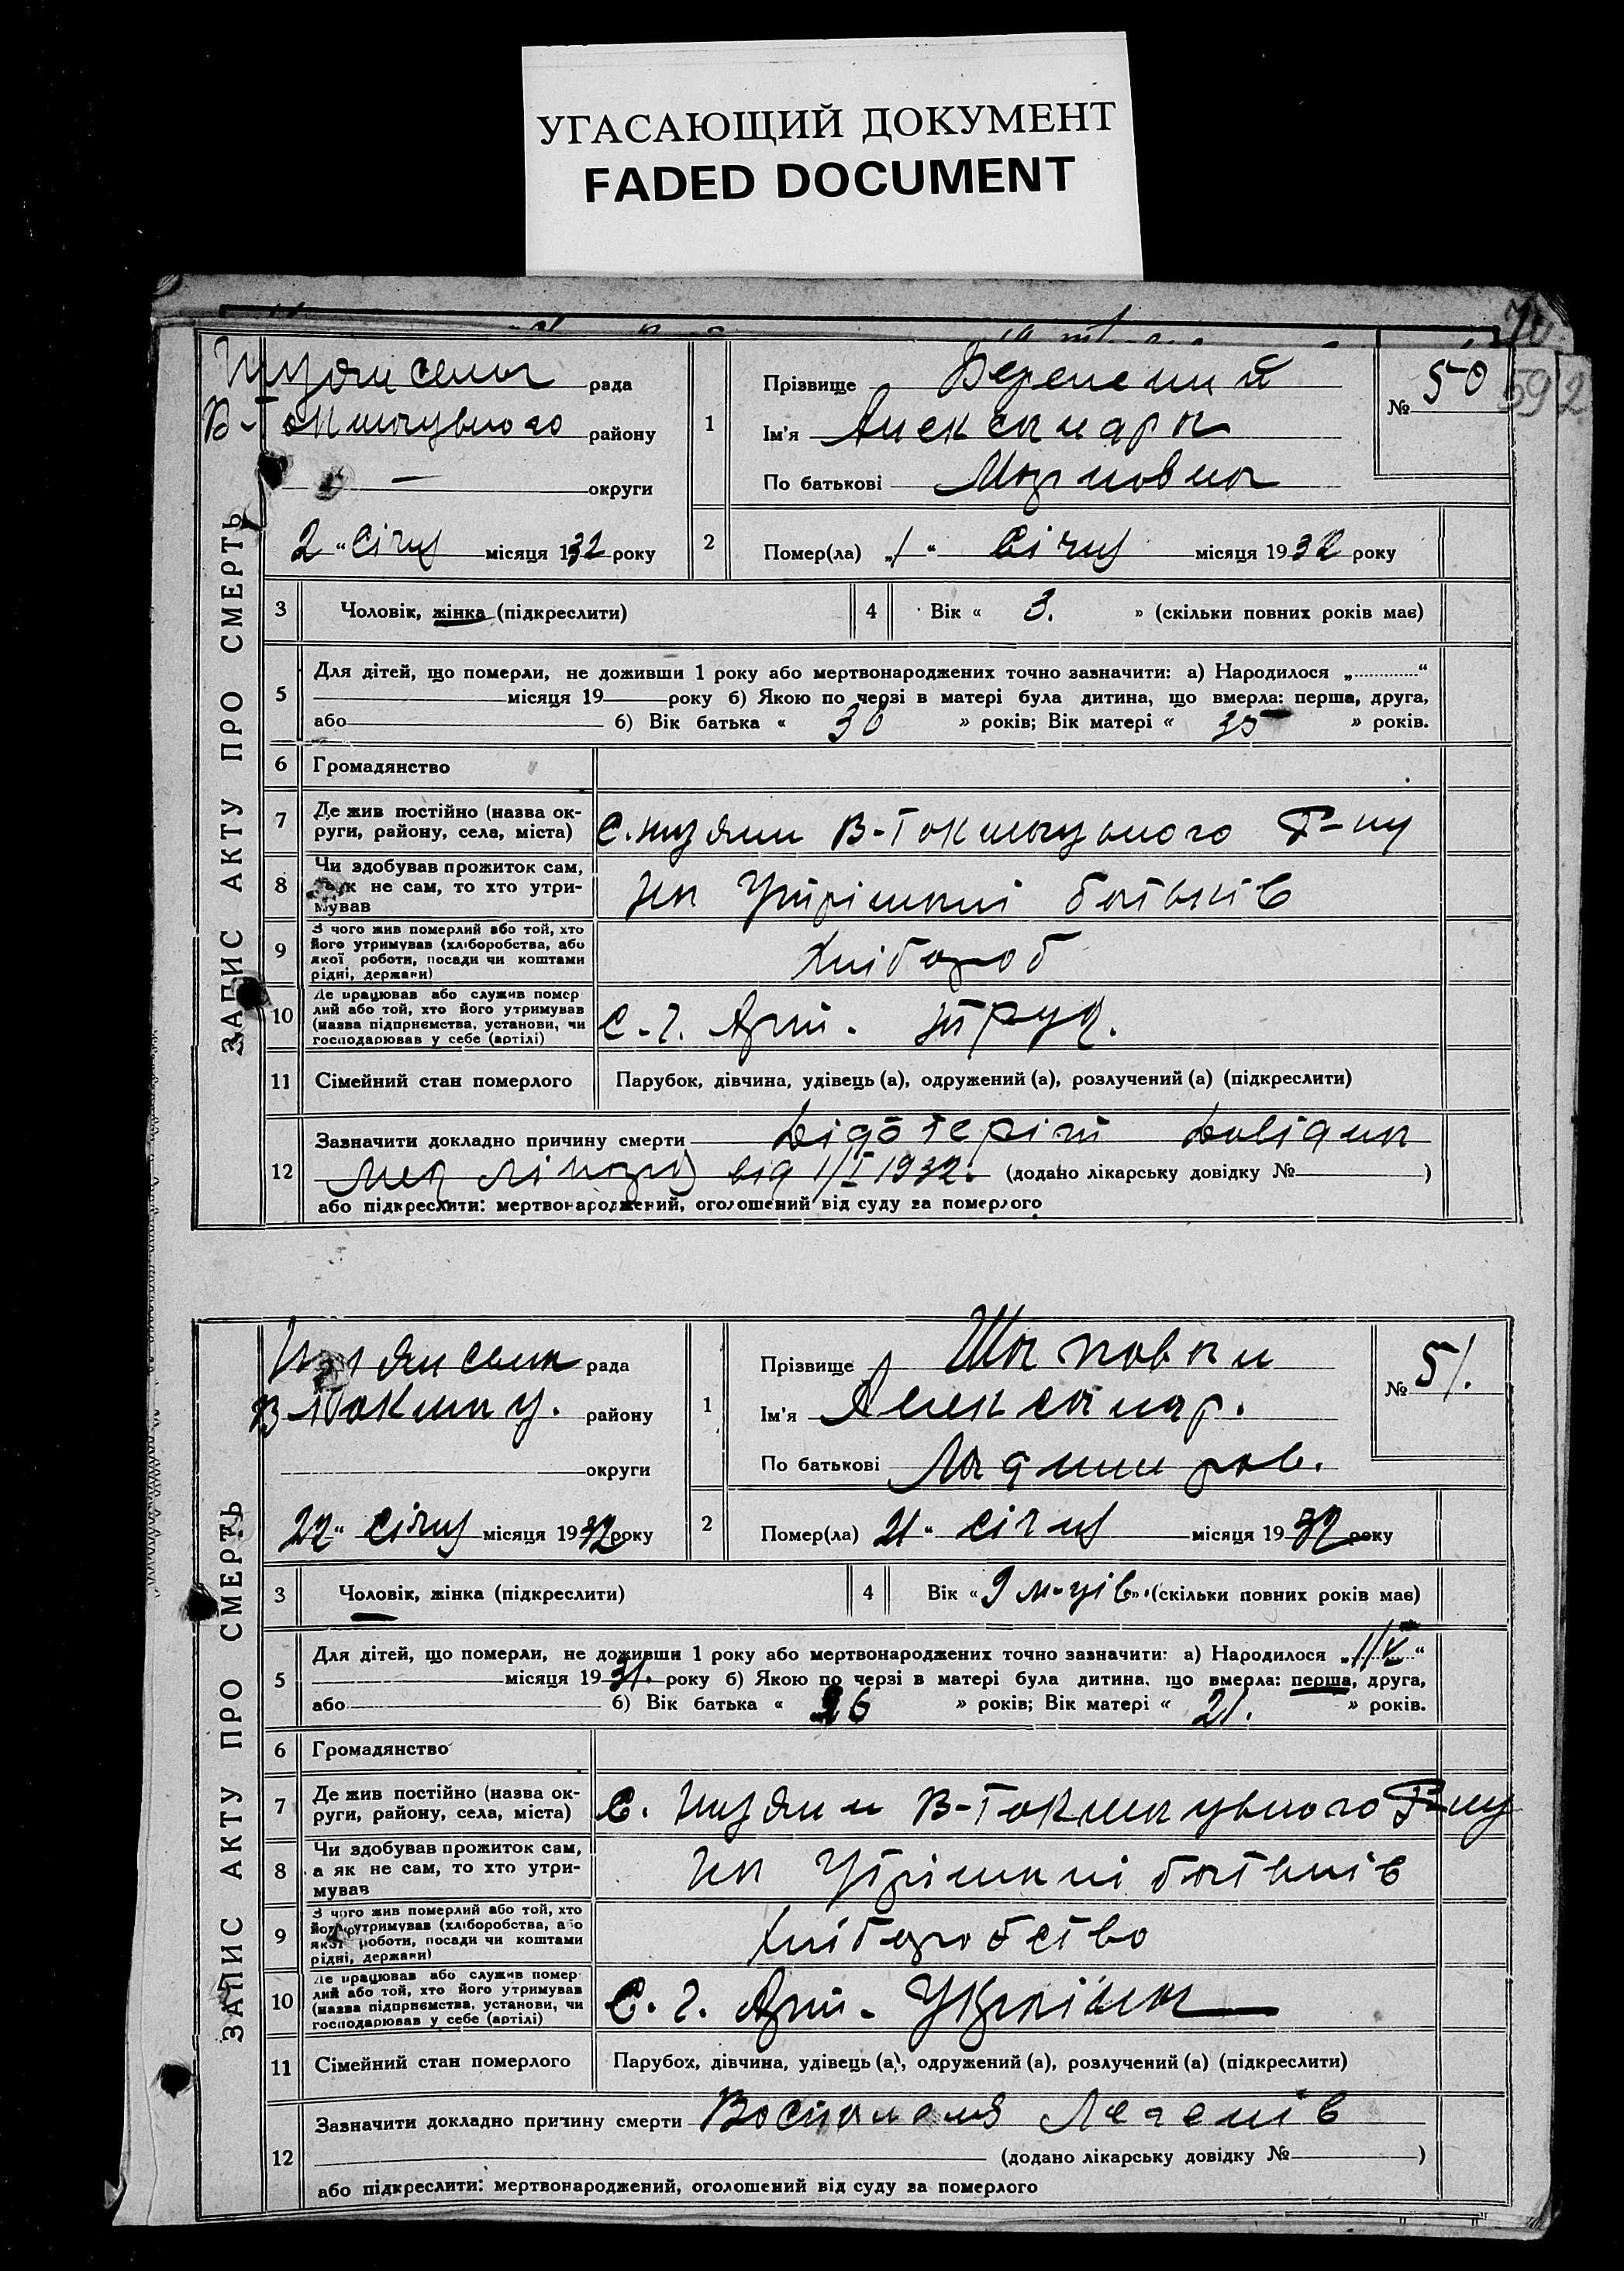 УГАСАЮЩИЙ ДОКУМЕНТ
FADED DOCUMENT
ЗАПИС АКТУ ПРО СМЕРТЬ
рада
району
— округи
2 “ Січня місяця 1932 року
1
Прізвище
Ім'я Александра
По батькові
№ 50
59
2
2
Помер(ла) „1“ Січня місяця 1932 року
3 Чоловік, жінка (підкреслити)
4 Вік « 3. » (скільки повних років має)
5
Для дітей, що померли, не доживши 1 року або мертвонароджених точно зазначити: а) Народилося „ “
місяця 19 року б) Якою по черзі в матері була дитина, що вмерла: перша, друга,
або б) Вік батька « 30 » років; Вік матері « 35 » років.
6 Громадянство
7
Де жив постійно (назва ок-
руги, району, села, міста)
С. В-Токмацького Р-ну
8
Чи здобував прожиток сам,
а як не сам, то хто утри-
мував
на Утріманні батьків
9
З чого жив померлий або той, хто
його утримував (хліборобства, або
якої роботи, посади чи коштами
рідні, держави)
Хлібороб
10
Де працював або служив помер
лий або той, хто його утримував
(назва підприємства, установи, чи
господарював у себе (артілі)
С-г. Арт. Труд.
11 Сімейний стан померлого
Парубок, дівчина, удівець (а), одружений (а), розлучений (а) (підкреслити)
12
Зазначити докладно причину смерти
від 1/I 1932. (додано лікарську довідку № )
або підкреслити: мертвонароджений, оголошений від суду за померлого
ЗАПИС АКТУ ПРО СМЕРТЬ
рада
В-Токмац. району
округи
22 “ січня місяця 1932 року
1
Прізвище Шаповал
Ім'я Александр.
По батькові
№ 51.
2
Помер(ла) 21 “ січня місяця 1932 року
3 Чоловік, жінка (підкреслити)
4 Вік « 9 м-ців » (скільки повних років має)
5
Для дітей, що померли, не доживши 1 року або мертвонароджених точно зазначити: а) Народилося „ “
місяця 1931. року б) Якою по черзі в матері була дитина, що вмерла: перша, друга,
або б) Вік батька « 26 » років; Вік матері « 21. » років.
6 Громадянство
7
Де жив постійно (назва ок-
руги, району, села, міста)
С. В-Токмацького Р-ну
8
Чи здобував прожиток сам,
а як не сам, то хто утри-
мував
на Утріманні батьків
9
З чого жив померлий або той, хто
його утримував (хліборобства, або
якої роботи, посади чи коштами
рідні, держави)
Хліборобство
10
Де працював або служив помер
лий або той, хто його утримував
(назва підприємства, установи, чи
господарював у себе (артілі)
С. г. Арт. Україна
11 Сімейний стан померлого
Парубок, дівчина, удівець (а), одружений (а), розлучений (а) (підкреслити)
12
Зазначити докладно причину смерти Воспаленя Легенів
(додано лікарську довідку № )
або підкреслити: мертвонароджений, оголошений від суду за померлого